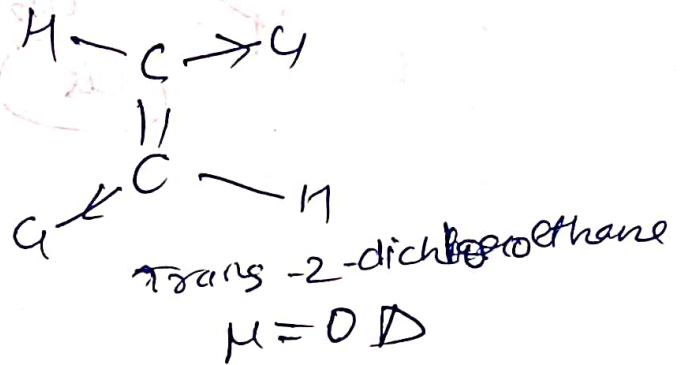 H C Cl
||
C
Cl H
Trans -2-dichloroethane
μ = 0 D